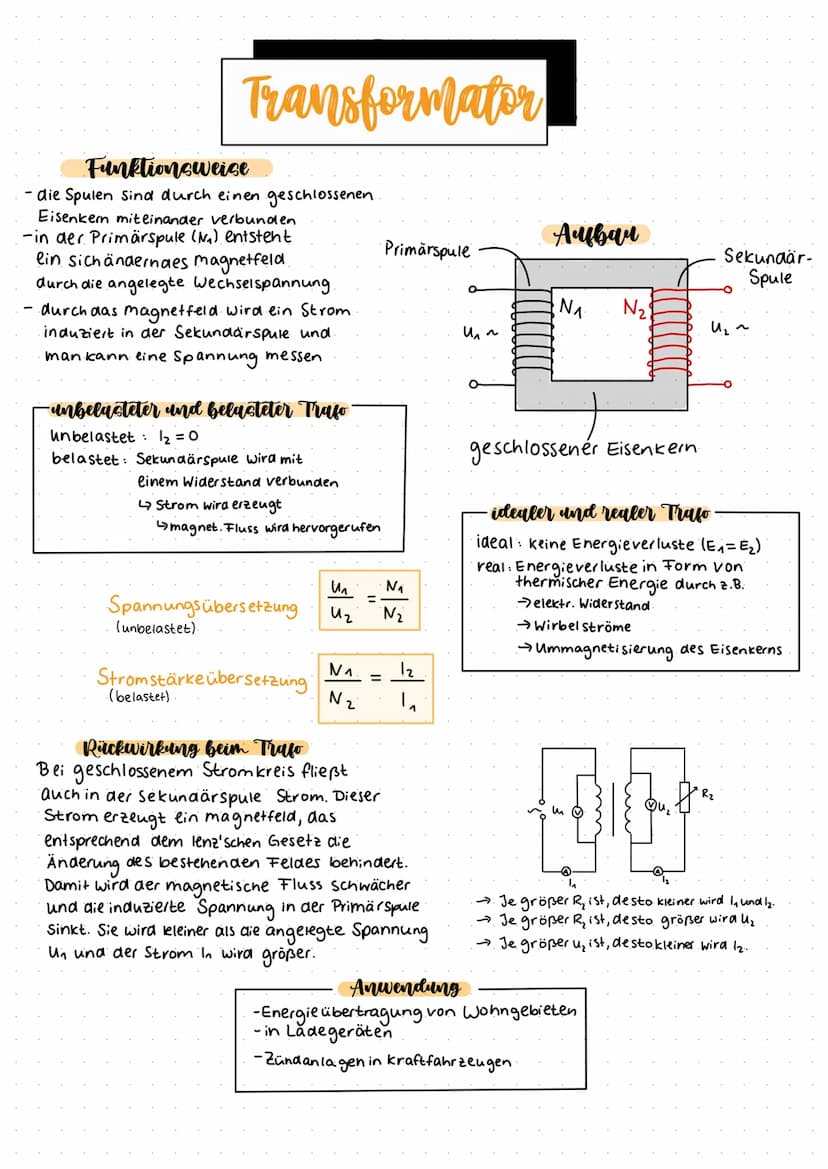 Transformator
Funktionsweise
- die Spulen sind durch einen geschlossenen
Eisenkern miteinander verbunden
- in der Primärspule (N₁) entsteht
ein sich änderndes magnetfeld
durch die angelegte Wechselspannung
- durch das magnetfeld wird ein Strom
induziert in der Sekundärspule und
man kann eine Spannung messen
Aufbau
Primärspule
Sekundär-
Spule
N₁
N₂
U₁ ~
U₂ ~
geschlossener Eisenkern
unbelasteter und belasteter Trafo
unbelastet : I₂ = 0
belastet : Sekundärspule wird mit
einem Widerstand verbunden
↳ Strom wird erzeugt
↳ magnet. Fluss wird hervorgerufen
idealer und realer Trafo
ideal : keine Energieverluste (E₁ = E₂)
real : Energieverluste in Form von
thermischer Energie durch z.B.
→ elektr. Widerstand
→ Wirbelströme
→ Ummagnetisierung des Eisenkerns
Spannungsübersetzung
(unbelastet)
U₁/U₂ = N₁/N₂
Stromstärkeübersetzung
(belastet)
N₁/N₂ = I₂/I₁
Rückwirkung beim Trafo
Bei geschlossenem Stromkreis fließt
auch in der Sekundärspule Strom. Dieser
Strom erzeugt ein magnetfeld, das
entsprechend dem lenz'schen Gesetz die
Änderung des bestehenden Feldes behindert.
Damit wird der magnetische Fluss schwächer
und die induzierte Spannung in der Primärspule
sinkt. Sie wird kleiner als die angelegte Spannung
U₁ und der Strom I₁ wird größer.
~ U₁ V
V U₂
R₂
A
I₁
A
I₂
→ Je größer R₂ ist, desto kleiner wird I₁ und I₂.
→ Je größer R₂ ist, desto größer wird U₂
→ Je größer U₂ ist, desto kleiner wird I₂.
Anwendung
- Energieübertragung von Wohngebieten
- in Ladegeräten
- Zündanlagen in Kraftfahrzeugen